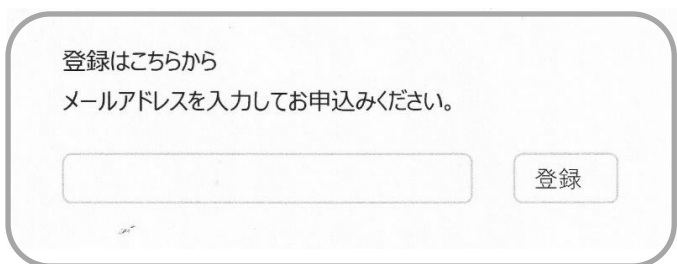 登録はこちらから
メールアドレスを入力してお申込みください。
登録